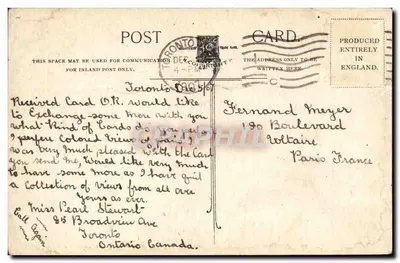 POST CARD.
THIS SPACE MAY BE USED FOR COMMUNICATION
FOR INLAND POST ONLY.
THE ADDRESS ONLY TO BE
WRITTEN HERE.
PRODUCED
ENTIRELY
IN
ENGLAND.
TORONTO
DEC
Toronto Dec
Received Card O.K. would like
to Exchange some more with you
what kind of Cards do you
I prefer Colored Views
was very much pleased with the Card
you send me, Would like very much
to have some more as I have quit
a Collection of views from all over
Yours as ever.
Miss Pearl Stewart
85 Broadview Ave
Toronto
Ontario Canada.
Call Again
Fernand Meyer
190 Boulevard
Voltaire
Paris France